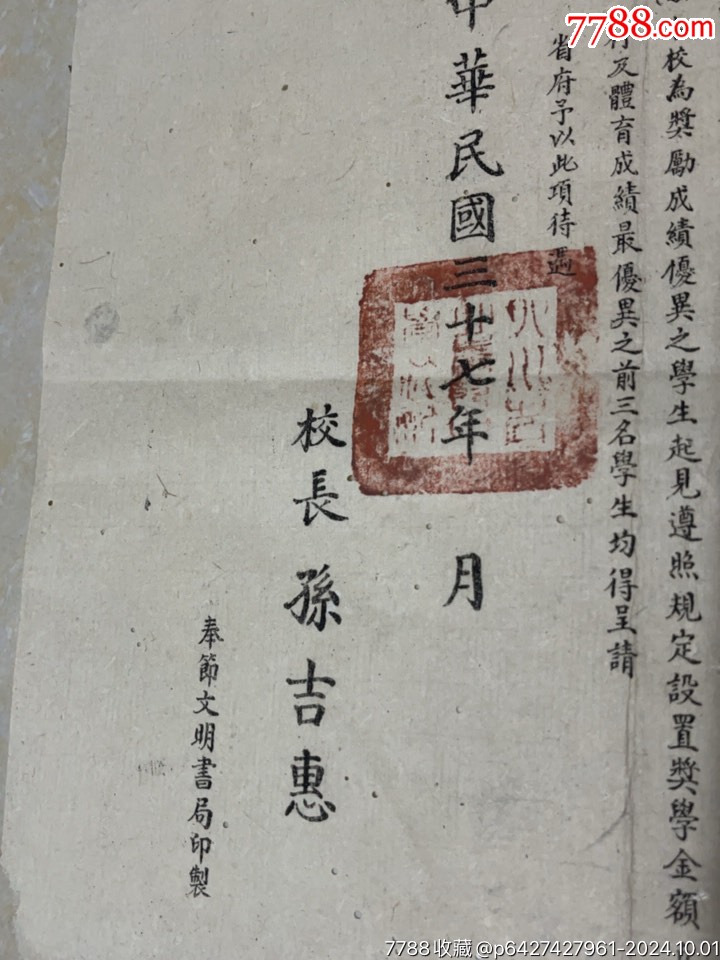 7788.com
校為獎勵成績優異之學生起見遵照規定設置獎學金額
及體育成績最優異之前三名學生均得呈請
省府予以此項待遇
中華民國三十七年 月
校長 孫吉惠
奉節文明書局印製
7788收藏@p6427427961-2024.10.01